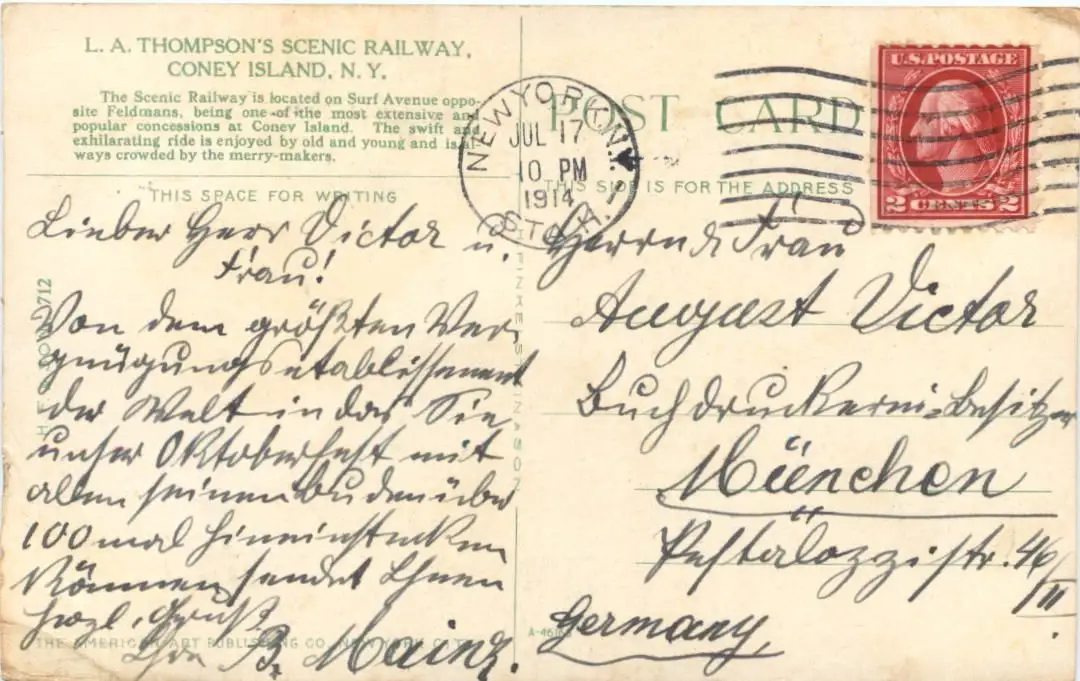 L. A. THOMPSON'S SCENIC RAILWAY,
CONEY ISLAND, N. Y.
The Scenic Railway is located on Surf Avenue oppo-
site Feldmans, being one of the most extensive and
popular concessions at Coney Island. The swift and
exhilarating ride is enjoyed by old and young and is al-
ways crowded by the merry-makers.
THIS SPACE FOR WRITING
Lieber Herr Victor u.
Frau!
Von dem größten Ver-
gnügungsetablissement
der Welt in das Sie
unser Oktoberfest mit
allen seinen Buden über
100 mal hineinstecken
können sendet Ihnen
herzl. Gruß
Ihr B. Mainz.
THE AMERICAN ART PUBLISHING CO., NEW YORK CITY
POST CARD
THIS SIDE IS FOR THE ADDRESS
NEW YORK, N.Y.
JUL 17
10 PM
1914
STA.
U.S. POSTAGE
2 CENTS 2
Herrn & Frau
August Victor
Buchdruckerei-Besitzer
München
Pestalozzistr. 46/II
Germany,